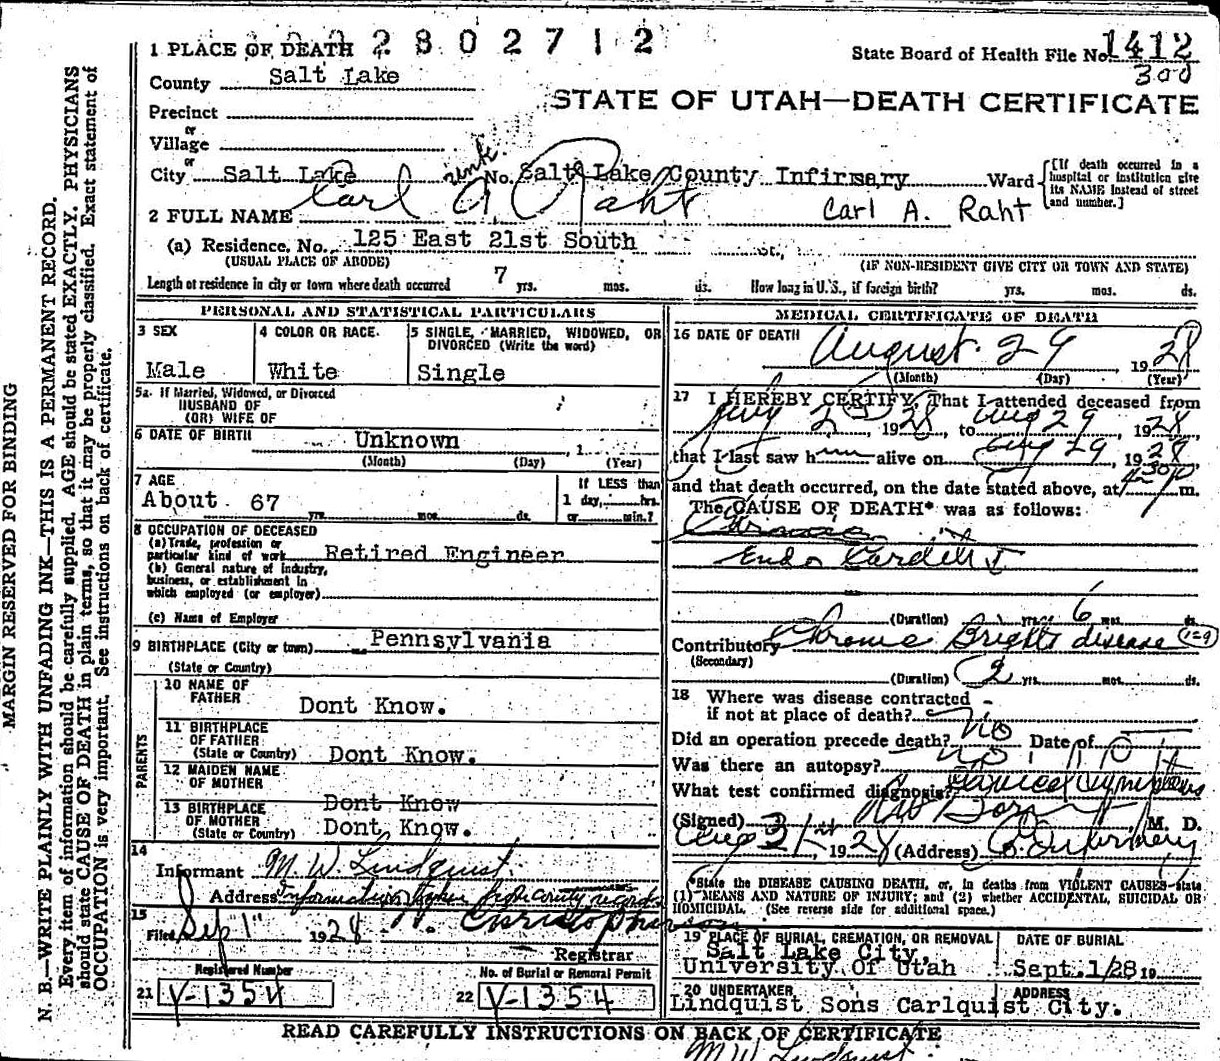 MARGIN RESERVED FOR BINDING
N. B.—WRITE PLAINLY WITH UNFADING INK—THIS IS A PERMANENT RECORD.
Every item of information should be carefully supplied. AGE should be stated EXACTLY. PHYSICIANS
should state CAUSE OF DEATH in plain terms, so that it may be properly classified. Exact statement of
OCCUPATION is very important. See instructions on back of certificate.
2802712
State Board of Health File No. 1412
300
STATE OF UTAH—DEATH CERTIFICATE
1 PLACE OF DEATH
County Salt Lake
Precinct
or
Village
or
City Salt Lake No. Salt Lake County Infirmary Ward
[If death occurred in a
hospital or institution give
its NAME instead of street
and number.]
2 FULL NAME Carl A. Raht Carl A. Raht
(a) Residence. No. 125 East 21st South St.,
(USUAL PLACE OF ABODE) (IF NON-RESIDENT GIVE CITY OR TOWN AND STATE)
Length of residence in city or town where death occurred 7 yrs. mos. ds. How long in U.S., if foreign birth? yrs. mos. ds.
PERSONAL AND STATISTICAL PARTICULARS
3 SEX
Male
4 COLOR OR RACE
White
5 SINGLE, MARRIED, WIDOWED, OR
DIVORCED (Write the word)
Single
5a. If Married, Widowed, or Divorced
HUSBAND OF
(OR) WIFE OF
6 DATE OF BIRTH Unknown , 1
(Month) (Day) (Year)
7 AGE
About 67
yrs. mos. ds.
If LESS than
1 day, hrs.
or min.?
8 OCCUPATION OF DECEASED
(a) Trade, profession or
particular kind of work Retired Engineer
(b) General nature of industry,
business, or establishment in
which employed (or employer)
(c) Name of Employer
9 BIRTHPLACE (City or town) Pennsylvania
(State or Country)
PARENTS
10 NAME OF
FATHER Dont Know.
11 BIRTHPLACE
OF FATHER
(State or Country) Dont Know.
12 MAIDEN NAME
OF MOTHER Dont Know
13 BIRTHPLACE
OF MOTHER
(State or Country) Dont Know.
14
Informant M. W. Lindquist
Address Information taken from county records
15
Filed Sep 1 1928 Christopherson
Registrar
Registered Number
21 V-1354
No. of Burial or Removal Permit
22 V-1354
MEDICAL CERTIFICATE OF DEATH
16 DATE OF DEATH August 29 1928
(Month) (Day) (Year)
17 I HEREBY CERTIFY, That I attended deceased from
1928, to Aug 29, 1928
that I last saw him alive on Aug 29, 1928
and that death occurred, on the date stated above, at 4-30 p m.
The CAUSE OF DEATH* was as follows:
Chronic
Endo Carditis
(Duration) yrs. 6 mos. ds.
Contributory Chronic Brights disease 129
(Secondary)
(Duration) 2 yrs. mos. ds.
18 Where was disease contracted
if not at place of death?
Did an operation precede death? No Date of
Was there an autopsy? no
What test confirmed diagnosis? Symptoms
(Signed) , M. D.
Aug 31st, 1928 (Address) Co. Infirmary
*State the DISEASE CAUSING DEATH, or, in deaths from VIOLENT CAUSES state
(1) MEANS AND NATURE OF INJURY; and (2) whether ACCIDENTAL, SUICIDAL OR
HOMICIDAL. (See reverse side for additional space.)
19 PLACE OF BURIAL, CREMATION, OR REMOVAL
Salt Lake City,
University Of Utah
DATE OF BURIAL
Sept. 1/28 19
20 UNDERTAKER ADDRESS
Lindquist Sons Carlquist City.
READ CAREFULLY INSTRUCTIONS ON BACK OF CERTIFICATE
M W Lindquist